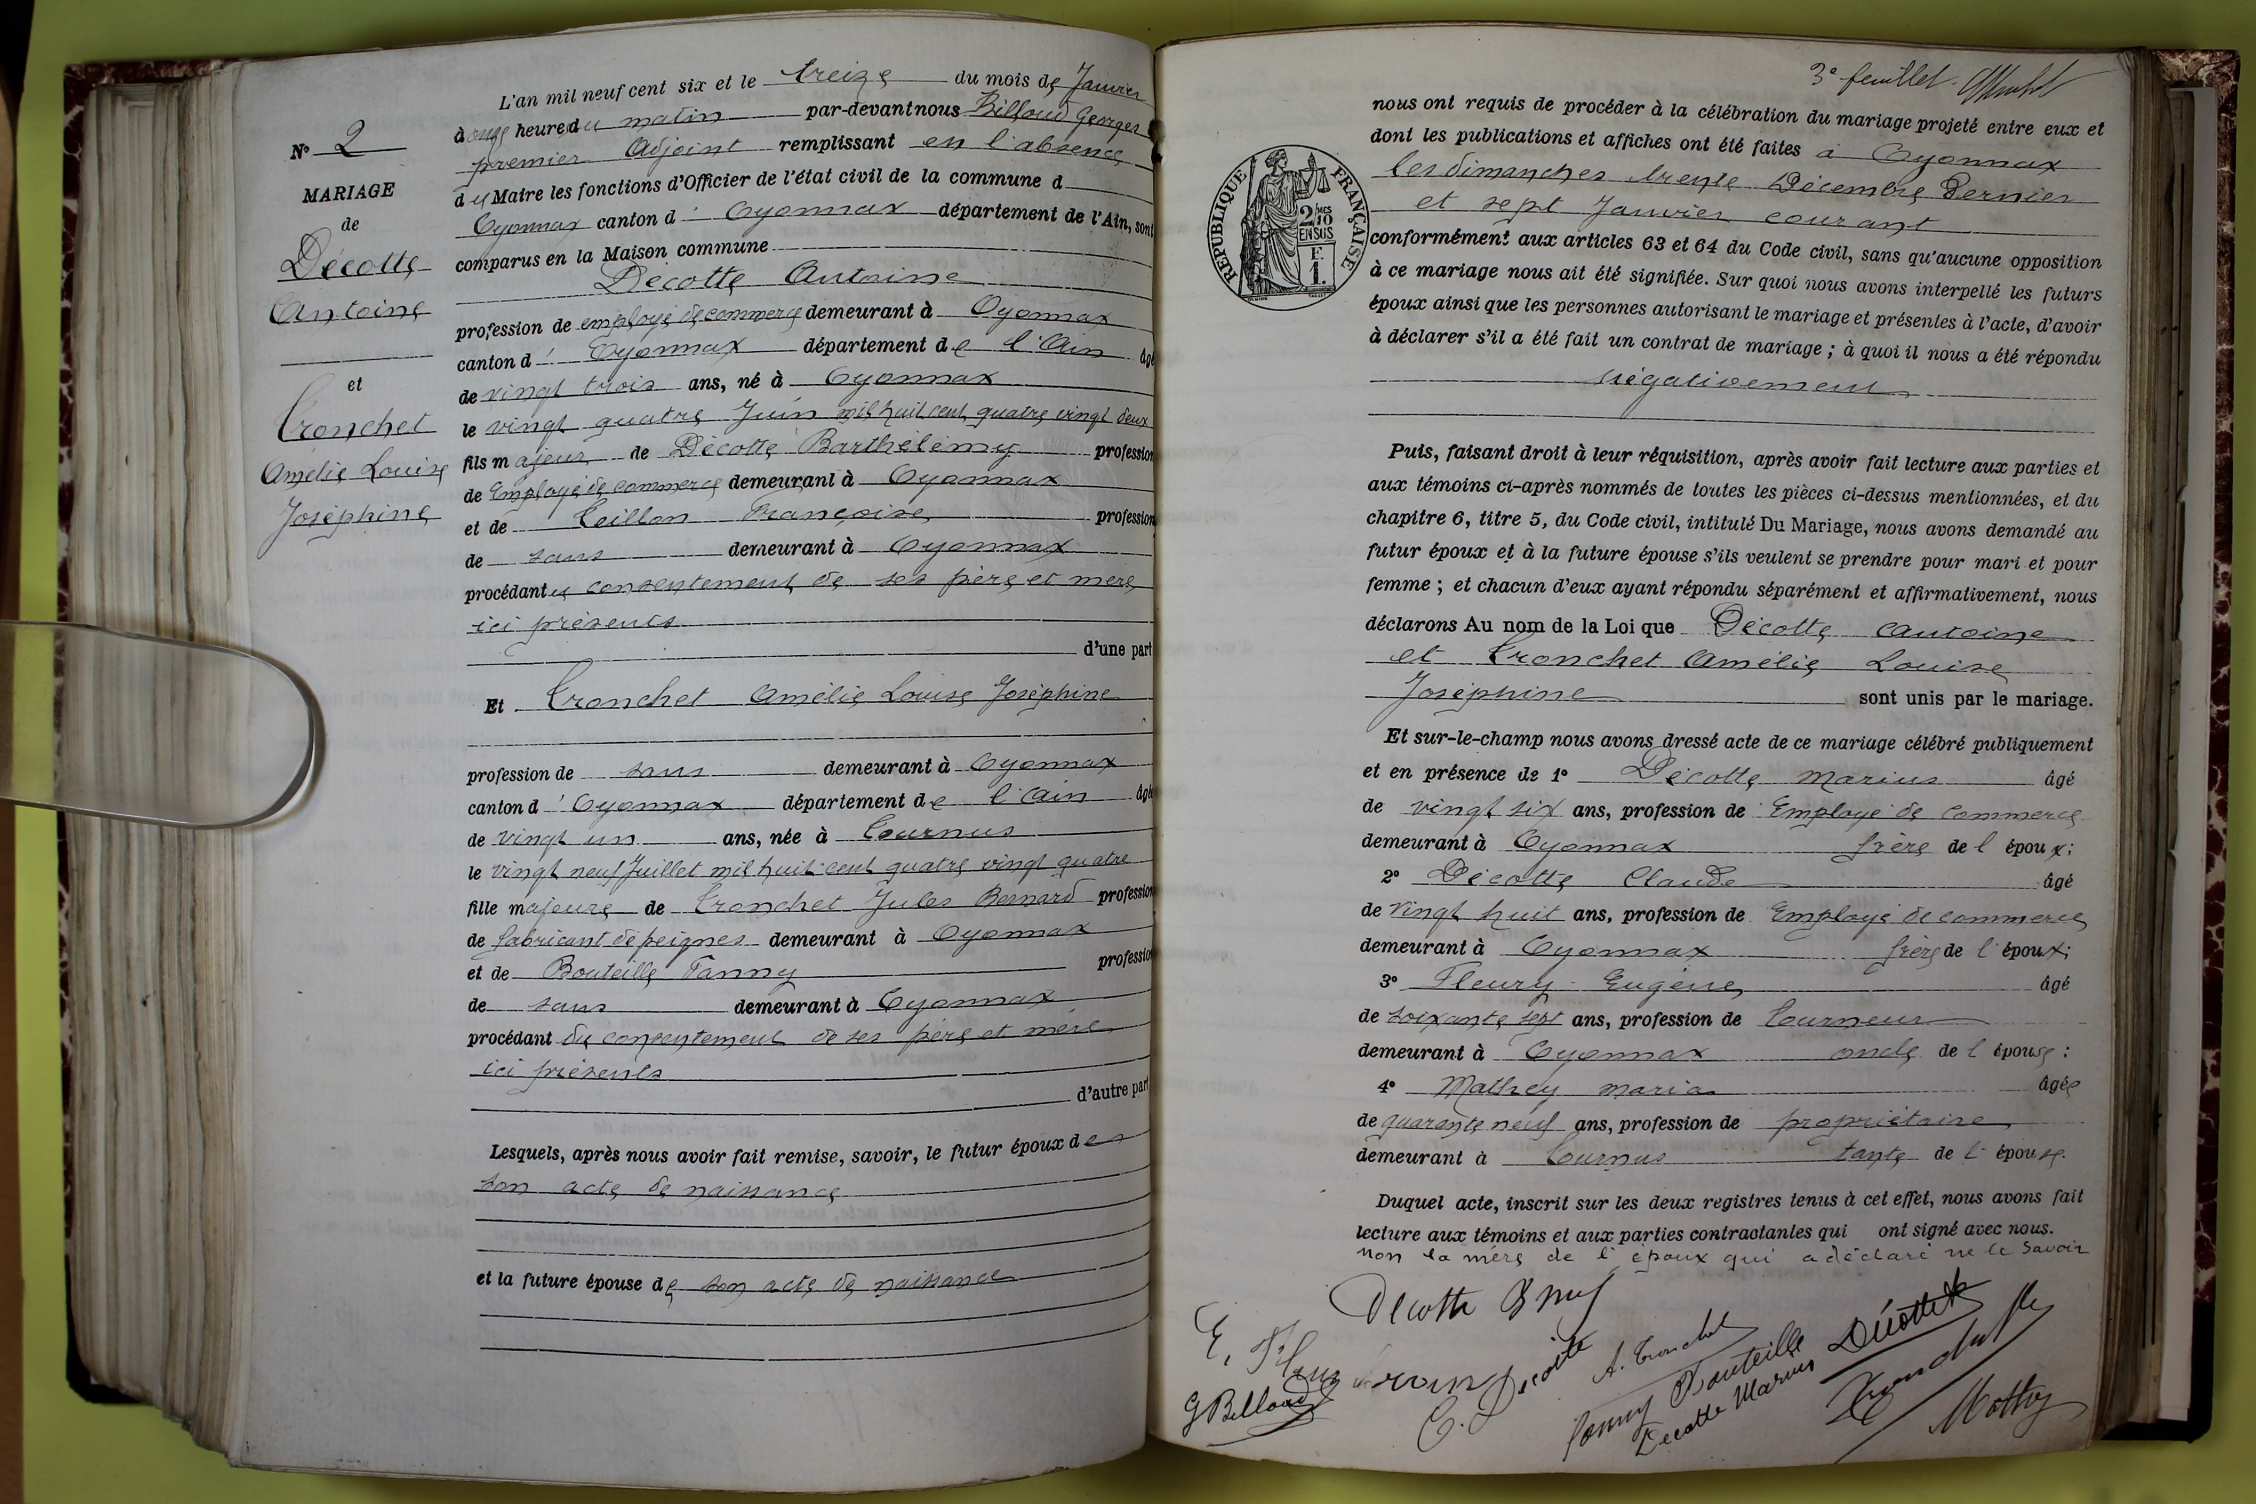 L'an mil neuf cent six et le treize du mois de Janvier
à onze heures du matin par-devant nous Billoud Georges
premier Adjoint remplissant en l'absence
du Maire les fonctions d'Officier de l'état civil de la commune d
Oyonnax canton d' Oyonnax département de l'Ain, sont
comparus en la Maison commune
Décotte Antoine
profession de employé de commerce demeurant à Oyonnax
canton d' Oyonnax département de l'Ain âgé
de vingt trois ans, né à Oyonnax
le vingt quatre Juin mil huit cent quatre vingt deux
fils majeur de Décotte Barthélemy profession
de Employé de commerce demeurant à Oyonnax
et de Teillon Françoise profession
de sans demeurant à Oyonnax
procédant du consentement de ses père et mère
ici présents
d'une part
Et Tronchet Amélie Louise Joséphine
profession de sans demeurant à Oyonnax
canton d' Oyonnax département de l'Ain âgée
de vingt un ans, née à Tournus
le vingt neuf Juillet mil huit cent quatre vingt quatre
fille majeure de Tronchet Jules Bernard profession
de fabricant de peignes demeurant à Oyonnax
et de Bouteille Fanny profession
de sans demeurant à Oyonnax
procédant du consentement de ses père et mère
ici présents
d'autre part
Lesquels, après nous avoir fait remise, savoir, le futur époux de
son acte de naissance
et la future épouse de son acte de naissance
N° 2
MARIAGE
de
Décotte
Antoine
et
Tronchet
Amélie Louise
Joséphine
3e feuillet
nous ont requis de procéder à la célébration du mariage projeté entre eux et
dont les publications et affiches ont été faites à Oyonnax
les dimanches trente Décembre Dernier
et sept Janvier courant
conformément aux articles 63 et 64 du Code civil, sans qu'aucune opposition
à ce mariage nous ait été signifiée. Sur quoi nous avons interpellé les futurs
époux ainsi que les personnes autorisant le mariage et présentes à l'acte, d'avoir
à déclarer s'il a été fait un contrat de mariage ; à quoi il nous a été répondu
négativement
Puis, faisant droit à leur réquisition, après avoir fait lecture aux parties et
aux témoins ci-après nommés de toutes les pièces ci-dessus mentionnées, et du
chapitre 6, titre 5, du Code civil, intitulé Du Mariage, nous avons demandé au
futur époux et à la future épouse s'ils veulent se prendre pour mari et pour
femme ; et chacun d'eux ayant répondu séparément et affirmativement, nous
déclarons Au nom de la Loi que Décotte Antoine
et Tronchet Amélie Louise
Joséphine sont unis par le mariage.
Et sur-le-champ nous avons dressé acte de ce mariage célébré publiquement
et en présence de 1° Décotte Marius âgé
de vingt six ans, profession de Employé de commerce
demeurant à Oyonnax frère de l'époux;
2° Décotte Claude âgé
de vingt huit ans, profession de Employé de commerce
demeurant à Oyonnax frère de l'époux;
3° Fleury Eugène âgé
de soixante sept ans, profession de Tourneur
demeurant à Oyonnax oncle de l'épouse:
4° Mathey Maria âgée
de quarante neuf ans, profession de propriétaire
demeurant à Tournus tante de l'épouse.
Duquel acte, inscrit sur les deux registres tenus à cet effet, nous avons fait
lecture aux témoins et aux parties contractantes qui ont signé avec nous.
non la mère de l'époux qui a déclaré ne le savoir
Decotte
E. Fleury
G Billoud
C. Decotte
A. Tronchet
Fanny Bouteille
Decotte Marius
Décotte
Mathey
REPUBLIQUE FRANÇAISE
2/10
EN SUS
F.
1.